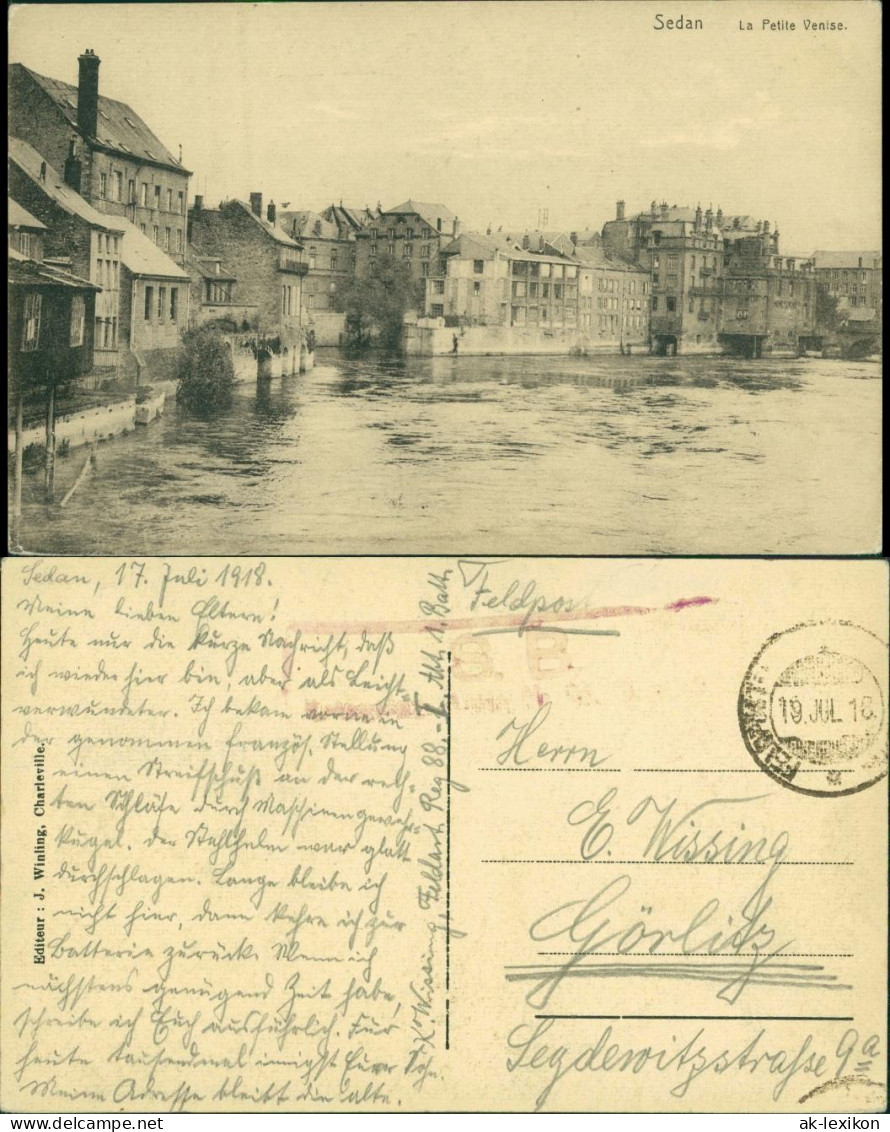 Sedan La Petite Venise.
Sedan, 17. Juli 1918.
Meine lieben Eltern!
Heute nur die kurze Nachricht, daß
ich wieder hier bin, aber als Leicht-
verwundeter. Ich bekam vorne in
der genommen französ. Stellung
einen Streifschuß an der rech-
ten Schläfe durch Maschinengewehr-
kugel. Der Stahlhelm war glatt
durchschlagen. Lange bleibe ich
nicht hier, dann kehre ich zur
Batterie zurück. Wenn ich
nächstens genügend Zeit habe,
schreibe ich Euch ausführlich. Für
heute tausendmal innigst Euer Sohn.
Meine Adresse bleibt die alte.
Editeur : J. Winling, Charleville.
K. Wissing, Feldart. Reg 88. - I. Abt. 1. Batt.
Feldpost
S. B.
19.JUL.18
Herrn
E. Wissing
Görlitz
Seydewitzstraße 9a
ak-lexikon